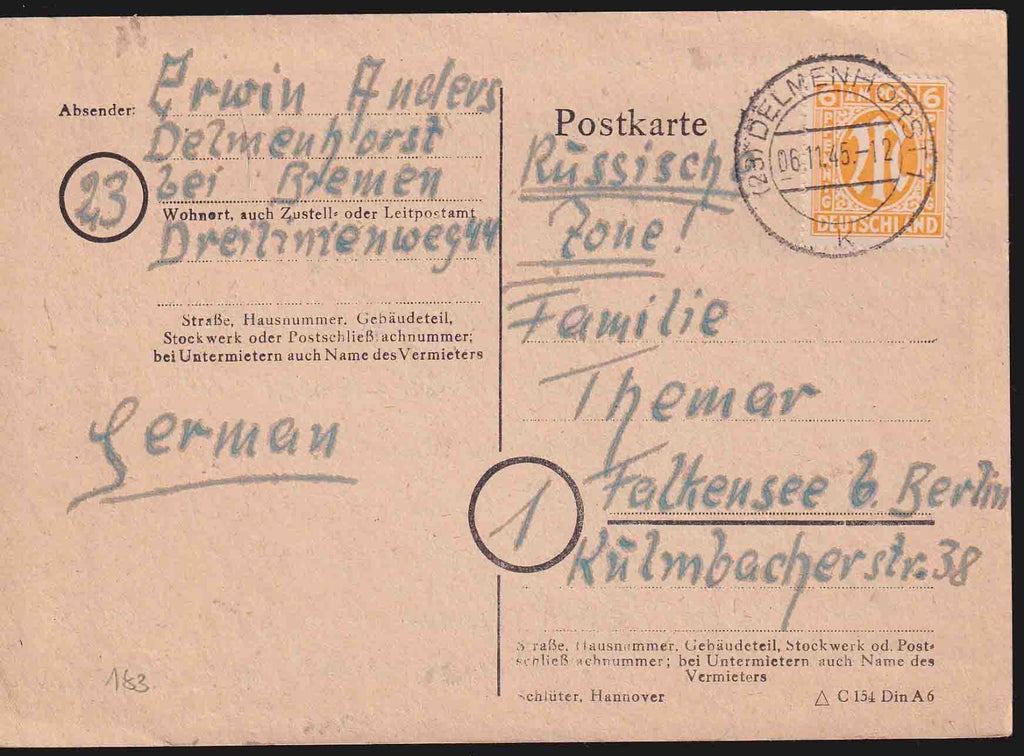 Absender:
Erwin Anders
Delmenhorst
23
bei Bremen
Wohnort, auch Zustell- oder Leitpostamt
Dreilinienweg 44
Straße, Hausnummer, Gebäudeteil,
Stockwerk oder Postschließfachnummer;
bei Untermietern auch Name des Vermieters
German
183
Postkarte
(23) DELMENHORST 1
06.11.46.-12
k
6 AM POST 6
DEUTSCHLAND
Russische
Zone!
Familie
Themar
1
Falkensee b. Berlin
Kulmbacherstr. 38
Straße, Hausnummer, Gebäudeteil, Stockwerk od. Post-
schließfachnummer; bei Untermietern auch Name des
Vermieters
Schlüter, Hannover
△ C 154 Din A 6